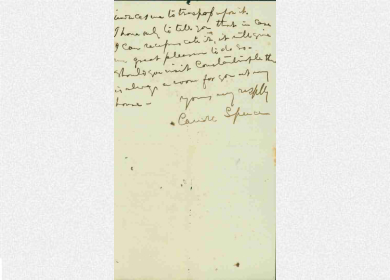 me to trespass upon it.
I have only to tell you that in case
I can reciprocate it, it will give
me great pleasure to do so.
Should you visit Constantinople there
is always a room for you at my
house -
Yours very resptly
Carroll Spence